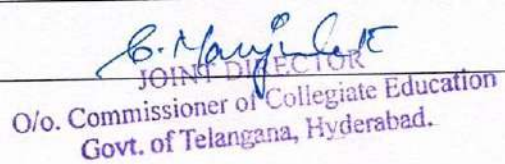 JOINT DIRECTOR
O/o. Commissioner of Collegiate Education
Govt. of Telangana, Hyderabad.